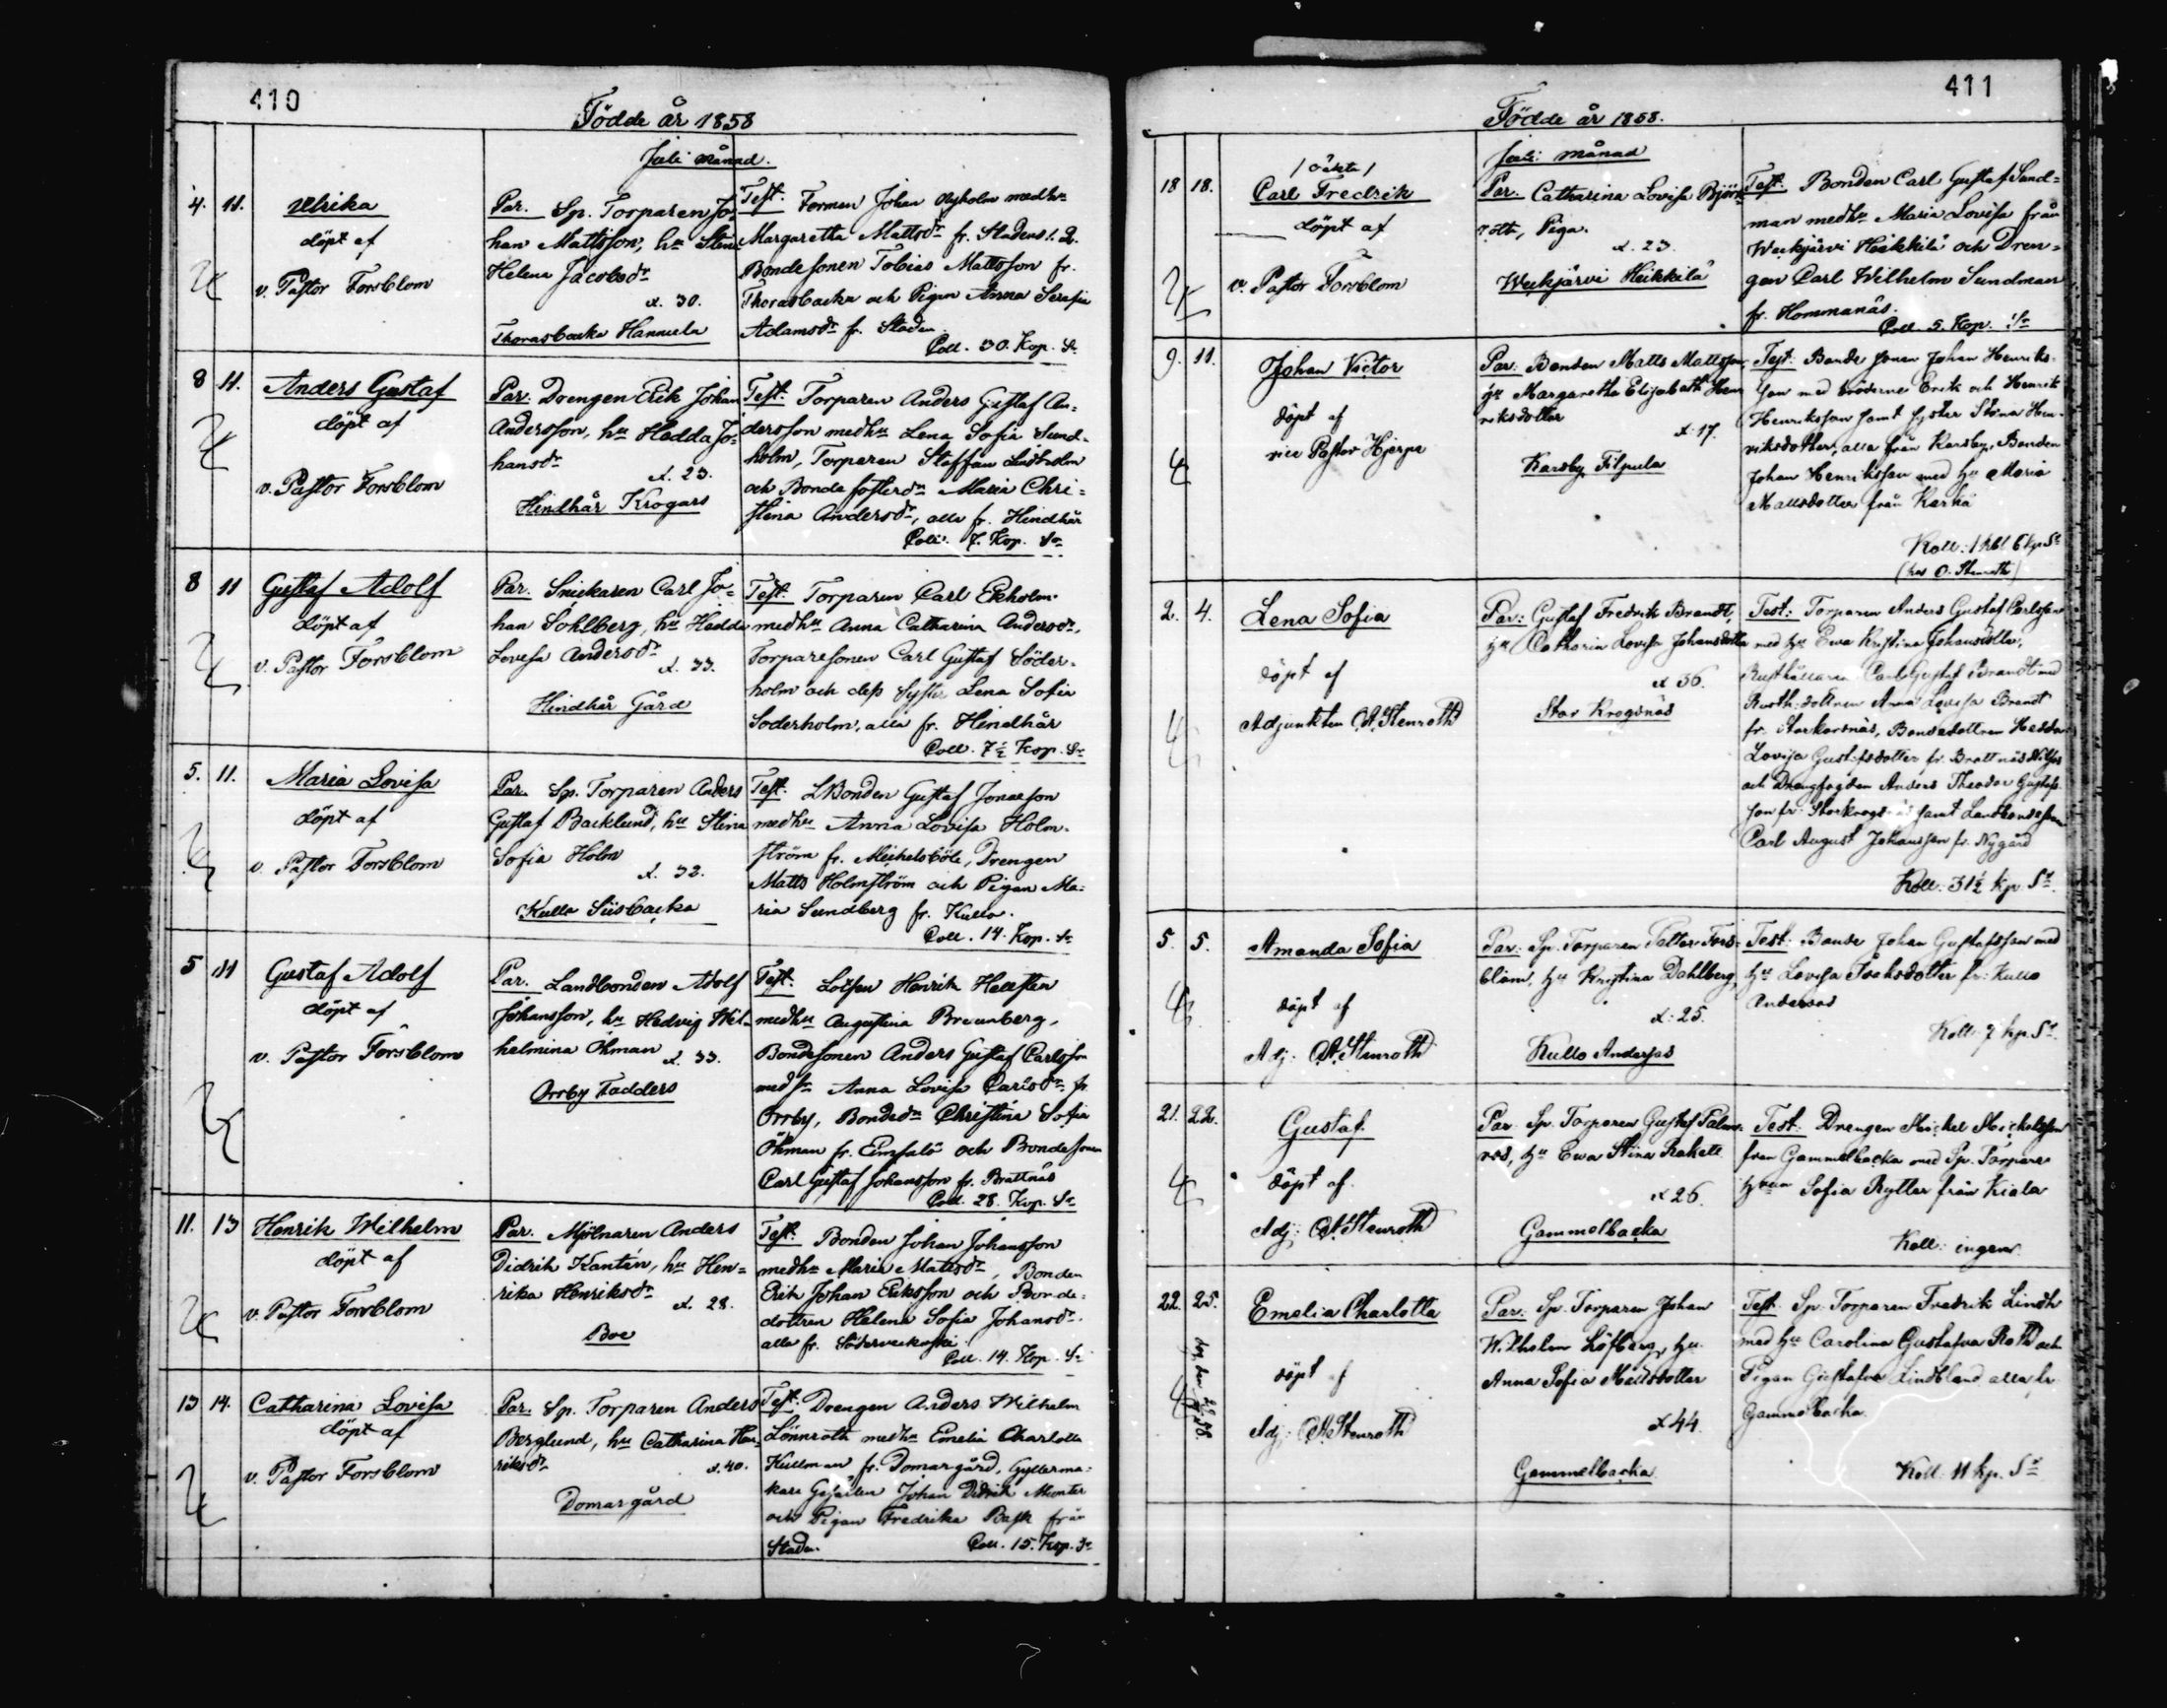 410
Födde år 1858
Juli månad.
4. 11. Ulrika
döpt af
v. Pastor Forsblom
Par. Sp. Torparen Jo-
han Mattsson, hu Stina
Helena Jacobsdr
æ. 30.
Thorasbacka Hannula
Test. Formen Johan medhu
Margaretha Mattsdr fr. Staden
Bondesonen Tobias Mattsson fr.
Thorasbacka och Pigan Anna Serafia
Adamsdr fr. Staden
Coll. 30. Kop. Sr
8 11. Anders Gustaf
döpt af
v. Pastor Forsblom
Par. Drengen Erik Johan
Andersson, hu Hedda Jo-
hansdr
æ. 23.
Hindhår Krogars
Test. Torparen Anders Gustaf An-
dersson medhu Lena Sofia Sund-
holm, Torparen Staffan Lindholm
och Bonde fosterdr Maria Chri-
stina Andersdr, alla fr. Hindhår
Coll. 7. Kop. Sr
8 11 Gustaf Adolf
döpt af
v. Pastor Forsblom
Par. Snickaren Carl Jo-
han Sohlberg, hu Hedda
Lovisa Andersdr
æ. 33.
Hindhår Gård
Test. Torparen Carl Ekholm
medhu Anna Catharina Andersdr,
Torparesonen Carl Gustaf Söder-
holm och dess Syster Lena Sofia
Soderholm, alla fr. Hindhår
Coll. 7½ Kop. Sr
5. 11. Maria Lovisa
döpt af
v. Pastor Forsblom
Par. Sp. Torparen Anders
Gustaf Backlund, hu Stina
Sofia Holm
æ. 32.
Kullo Siisbacka
Test. LBonden Gustaf Jonasson
medhu Anna Lovisa Holm-
ström fr. Mickelsböle, Drengen
Matts Holmström och Pigan Ma-
ria Sundberg fr. Kullo.
Coll. 14. Kop. Sr
5 11 Gustaf Adolf
döpt af
v. Pastor Forsblom
Par. Landbonden Adolf
Johansson, hu Hedvig Wil-
helmina Öhman
æ. 33.
Orrby Fadders
Test. Lotsen Henrik Hellsten
medhu Augustina Brunberg,
Bondesonen Anders Gustaf Carlsson
med Anna Lovisa Carlsdr fr.
Orrby, Bondedr Christina Sofia
Öhman fr. Emsalö och Bondesonen
Carl Gustaf Johansson fr. Brattnäs
Coll. 28. Kop. Sr
11. 13 Henrik Wilhelm
döpt af
v. Pastor Forsblom
Par. Mjölnaren Anders
Didrik Kantén, hu Hen-
rika Henriksdr
æ. 28.
Boe
Test. Bonden Johan Johansson
medhu Maria Mattsdr, Bonden
Erik Johan Eriksson och Bonde-
dottren Helena Sofia Johansdr.
alla fr. Söderveckoski
Coll. 14. Kop. Sr
13 14. Catharina Lovisa
döpt af
v. Pastor Forsblom
Par. Sp. Torparen Anders
Berglund, hu Catharina Hen-
riksdr
æ. 40.
Domargård
Test. Drengen Anders Wilhelm
Lönnroth medhu Emelia Charlotta
Kullman fr. Domargård, Gyllerma-
kare Gesällen Johan Didrik Munter
och Pigan Fredrika Bask från
Staden.
Coll. 15. Kop. Sr
411
Födde år 1858.
Juli månad
18 18. /oäkta/
Carl Fredrik
döpt af
v. Pastor Forsblom
Par. Catharina Lovisa Björk-
roth, Piga.
æ. 23.
Weckjärvi Heikkilä
Test. Bonden Carl Gustaf Sund-
man medhu Maria Lovisa från
Weckjärvi Heikkilä och Dren-
gen Carl Wilhelm Sundman
fr. Hommanäs.
Coll. 5. Kop. Sr
9. 11. Johan Victor
döpt af
vice Pastor Hjerpe
Par. Bonden Matts Mattsson,
hu Margaretha Elisabeth Hen-
riksdotter
æ: 17.
Karsby Filpula
Test: Bonde sonen Johan Henriks-
son med bröderne Erik och Henrik
Henriksson samt syster Stina Hen-
riksdotter, alla från Karsby, Bonden
Johan Henriksson med hu Maria
Mattsdotter från Kerkå
Koll: 1 rbl 6 kp Sr
(hos O. Stenroth)
2. 4. Lena Sofia
döpt af
Adjunkten A. Stenroth
Par: Gustaf Fredrik Brandt,
hu Catharin Lovisa Johansdotter
æ 36.
Stor Krogsnäs
Test: Torparen Anders Gustaf Carlsson
med hu Ewa Kristina Johansdotter,
Rusthållaren Carl Gustaf Brandt med
Rusth: dottren Anna Lovisa Brandt
fr. Storkorsnäs, Bondedottren Hedda
Lovisa Gustafsdotter fr. Brattnäs
och Drengfogden Anders Theodor Gustafs-
son fr: Storkrogsnäs samt Landbondeson
Carl August Johansson fr. Nygård
Koll: 31½ kp Sr.
5. 5. Amanda Sofia
döpt af
Adj: A. Stenroth
Par: Sp. Torparen Petter Fors-
blom, hu Kristina Dahlberg
æ: 25.
Kullo Andersas
Test: Bonde Johan Gustafsson med
hu Lovisa Isaksdotter fr: Kullo
Andersas
Koll: 7 kp. Sr.
21. 22. Gustaf
döpt af
Adj: A. Stenroth
Par. Sp. Torparen Gustaf Palm-
ros, hu Ewa Stina Rakell
æ 26.
Gammelbacka
Test: Drengen Mickel Mickelsson
från Gammelbacka med Sp. Torpare
hun Sofia Rytter från Kiala
Koll: ingen.
22. 25. Emelia Charlotta
döpt af
Adj: A. Stenroth
Par: Sp. Torparen Johan
Wilhelm Löfberg, hu
Anna Sofia Mattsdotter
æ 44.
Gammelbacka
Test. Sp. Torparen Fredrik Lindh
med hu Carolina Gustafva Roth och
Pigan Gustafva Lindblad alla fr.
Gammelbacka.
Koll: 11 kp. Sr